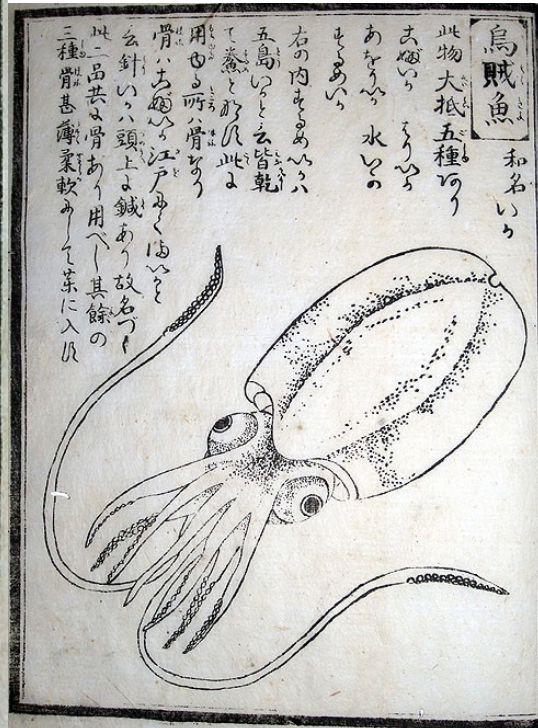 烏賊魚
和名いか
此物大抵五種あり
こぶいか はりいか
あをりいか 水いか
するめいか
右の内するめいかハ
五島いかと云皆乾
て鯗と形す此に
用ゆる所ハ骨なり
骨ハこぶいか江戸にてまいかと
云針いかハ頭上に鍼あり故名づく
此二品共に骨あり用べし其餘の
三種骨甚薄柔軟にして薬に入れず